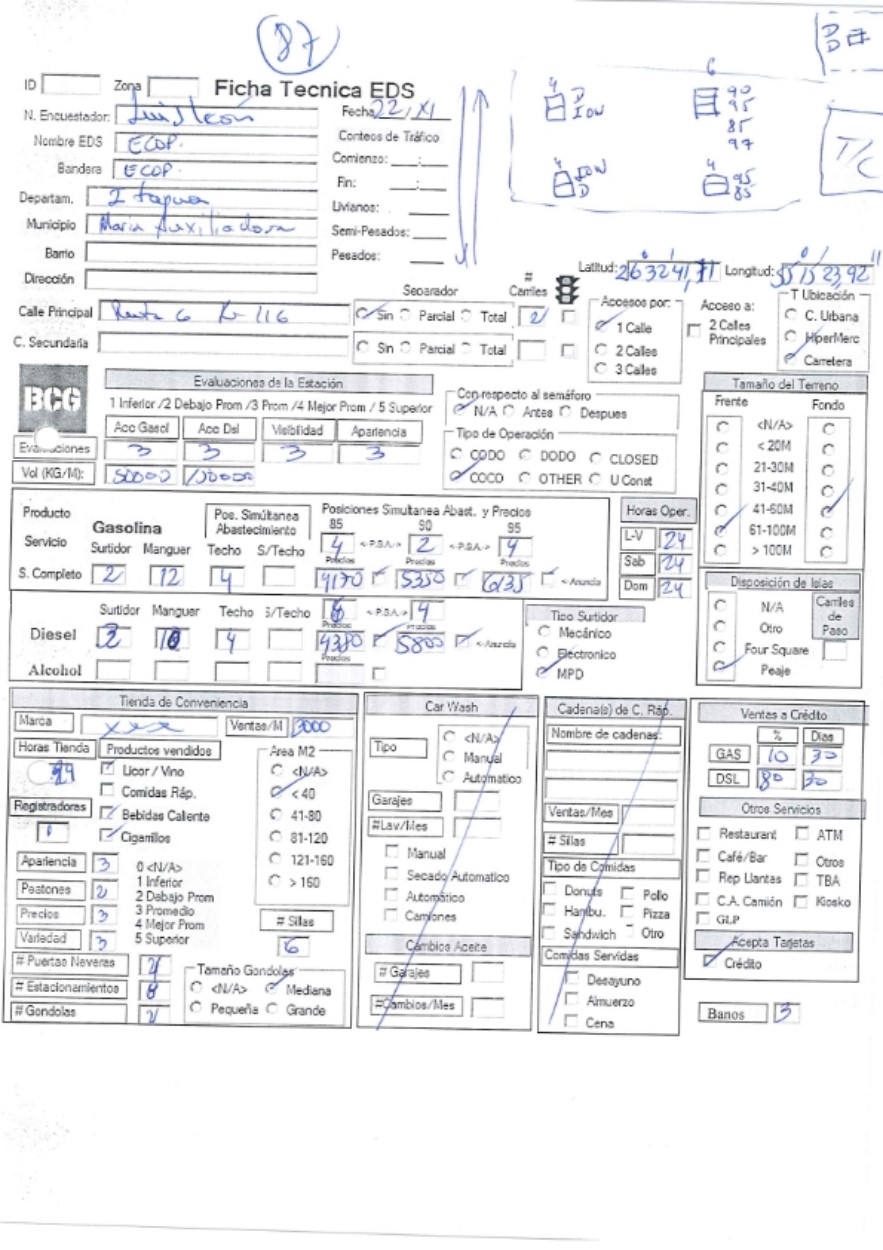 87
ID Zona Ficha Tecnica EDS
N. Encuestador: Luis León Fecha 22/XI
Nombre EDS ECOP. Conteos de Tráfico
Bandera ECOP. Comienzo: ___:___
Fin: ___:___
Departam. Itapua Livianos:
Municipio Maria Auxiliadora Semi-Pesados:
Barrio Pesados:
Dirección
4 D ION
6 90 95 85 97
4 ION D
4 95 85
T/C
Latitud: Longitud:
Calle Principal Ruta 6 Km 116
Separador # Carriles
Sin Parcial Total 2
C. Secundaria
Sin Parcial Total
Accesos por:
1 Calle
2 Calles
3 Calles
Acceso a:
2 Calles Principales
T Ubicación
C. Urbana
HiperMerc
Carretera
BCG
Evaluaciones de la Estación
1 Inferior /2 Debajo Prom /3 Prom /4 Mejor Prom / 5 Superior
Acc Gasol Acc Dsl Visibilidad Apariencia
Evaluaciones 3 3 3 3
Vol (KG/M): 50000 100000
Con respecto al semáforo
N/A Antes Despues
Tipo de Operación
CODO DODO CLOSED
COCO OTHER U Const
Tamaño del Terreno
Frente Fondo
<N/A>
< 20M
21-30M
31-40M
41-60M
61-100M
> 100M
Producto Gasolina
Pos. Simúltanea Abastecimiento
Posiciones Simultanea Abast. y Precios
85 90 95
Servicio Surtidor Manguer Techo S/Techo 4 <-P.S.A.-> 2 <-P.S.A.-> 4
Precios Precios Precios
S. Completo 2 12 4 4170 5350 6135 <-Anuncia
Horas Oper.
L-V 24
Sab 24
Dom 24
Surtidor Manguer Techo S/Techo <-P.S.A.-> 4
Precios Precios
Diesel 4 4380 5800 <-Anuncia
Precios
Alcohol
Tipo Surtidor
Mecánico
Electronico
MPD
Disposición de Islas
N/A
Otro
Four Square
Peaje
Carriles de Paso
Tienda de Conveniencia
Marca xxx Ventas/M 3000
Horas Tienda Productos vendidos
24
Licor / Vino
Comidas Ráp.
Bebidas Caliente
Cigarrillos
Registradores 1
Area M2
<N/A>
< 40
41-80
81-120
121-160
> 160
Apariencia 3
Peatones 2
Precios 3
Variedad 3
0 <N/A>
1 Inferior
2 Debajo Prom
3 Promedio
4 Mejor Prom
5 Superior
# Sillas
6
# Puertas Neveras
# Estacionamientos 8
# Gondolas
Tamaño Gondolas
<N/A> Mediana
Pequeña Grande
Car Wash
Tipo
<N/A>
Manual
Automatico
Garajes
#Lav/Mes
Manual
Secado Automatico
Automático
Camiones
Cambios Aceite
# Garajes
#Cambios/Mes
Cadena(s) de C. Ráp.
Nombre de cadenas:
Ventas/Mes
# Sillas
Tipo de Comidas
Donuts Pollo
Hambu. Pizza
Sandwich Otro
Comidas Servidas
Desayuno
Almuerzo
Cena
Ventas a Crédito
% Dias
GAS 10 30
DSL 80 30
Otros Servicios
Restaurant ATM
Café/Bar Otros
Rep Llantas TBA
C.A. Camión Kiosko
GLP
Acepta Tarjetas
Crédito
Banos 3